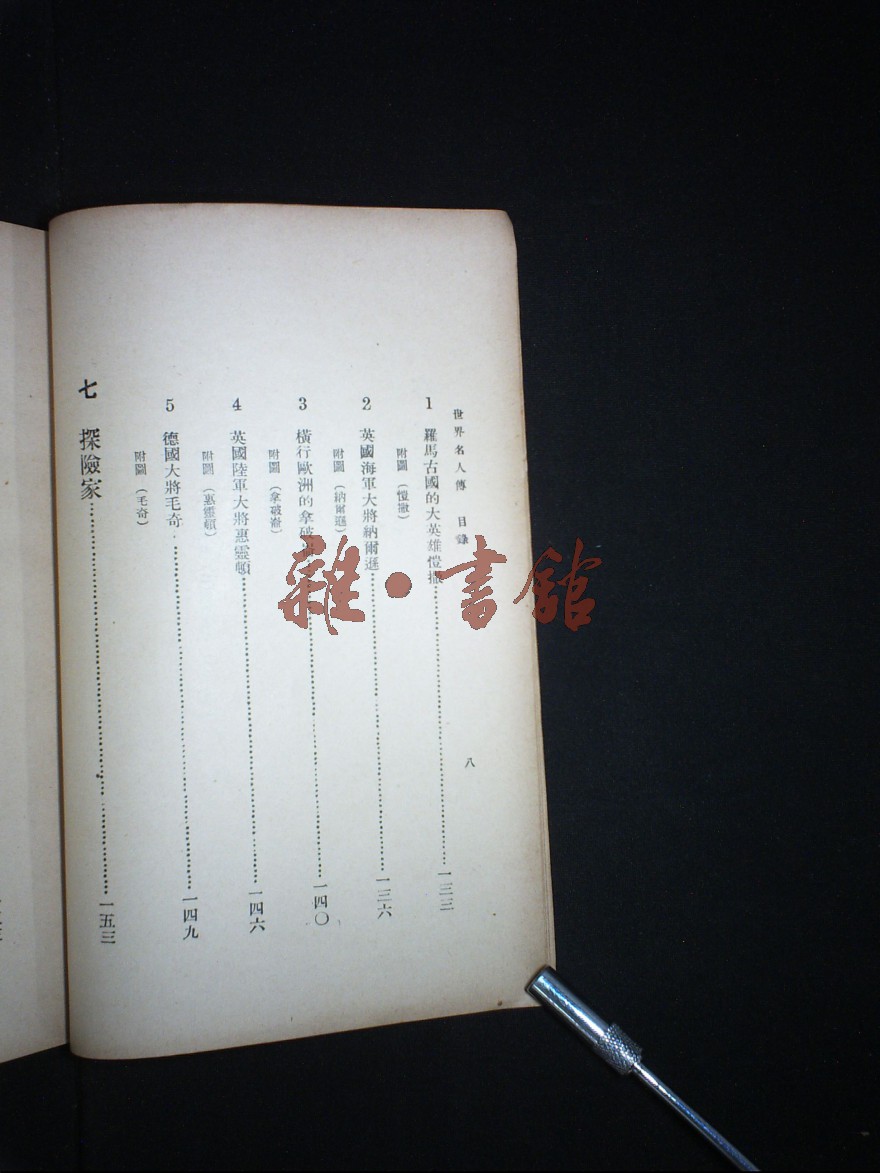 世界名人傳 目錄 八
1 羅馬古國的大英雄愷撒……一三三
附圖（愷撒）
2 英國海軍大將納爾遜……一三六
附圖（納爾遜）
3 橫行歐洲的拿破崙……一四〇
附圖（拿破崙）
4 英國陸軍大將惠靈頓……一四六
附圖（惠靈頓）
5 德國大將毛奇……一四九
附圖（毛奇）
七 探險家……一五三
雜·書館